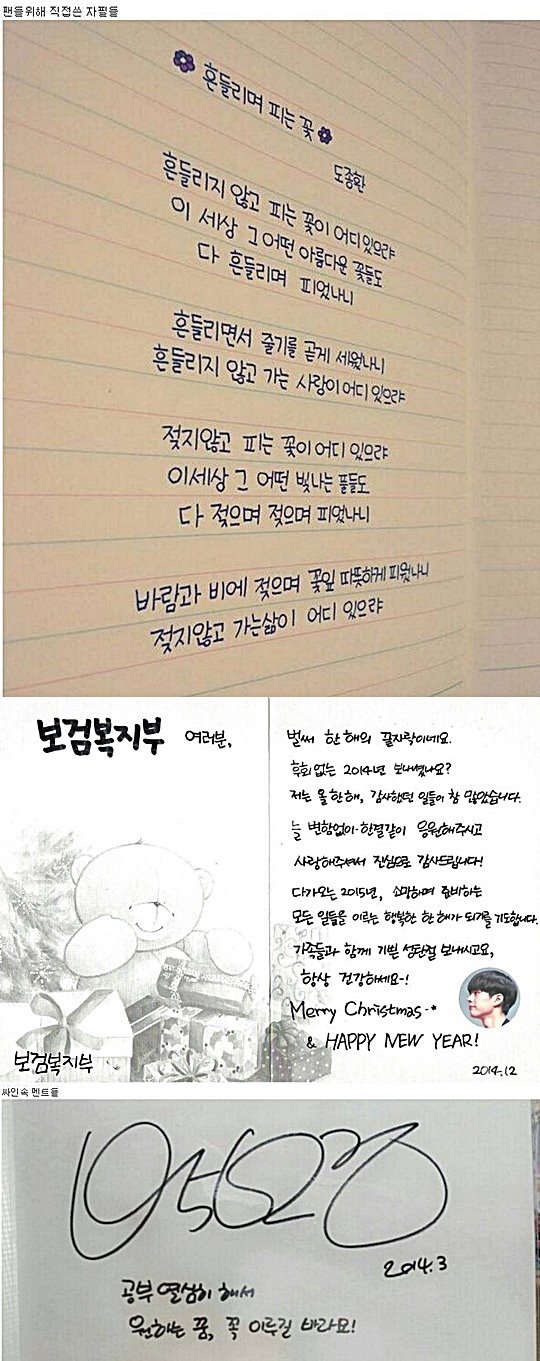 팬을위해 직접쓴 자필들
흔들리며 피는 꽃
도종환
흔들리지 않고 피는 꽃이 어디 있으랴
이 세상 그 어떤 아름다운 꽃들도
다 흔들리며 피었나니
흔들리면서 줄기를 곧게 세웠나니
흔들리지 않고 가는 사랑이 어디 있으랴
젖지않고 피는 꽃이 어디 있으랴
이세상 그 어떤 빛나는 풀들도
다 젖으며 젖으며 피었나니
바람과 비에 젖으며 꽃잎 따뜻하게 피웠나니
젖지않고 가는삶이 어디 있으랴
보검복지부 여러분,
보검복지부
벌써 한 해의 끝자락이네요.
후회 없는 2014년 보내셨나요?
저는 올 한 해, 감사했던 일들이 참 많았습니다.
늘 변함없이 한결같이 응원해주시고
사랑해주셔서 진심으로 감사드립니다!
다가오는 2015년, 소망하며 준비하는
모든 일들을 이루는 행복한 한 해가 되기를 기도합니다.
가족들과 함께 기쁜 성탄절 보내시고요,
항상 건강하세요~!
Merry Christmas·*
& HAPPY NEW YEAR!
2014.12
싸인속 멘트들
2014.3
공부 열심히 해서
원하는 꿈, 꼭 이루길 바라요!